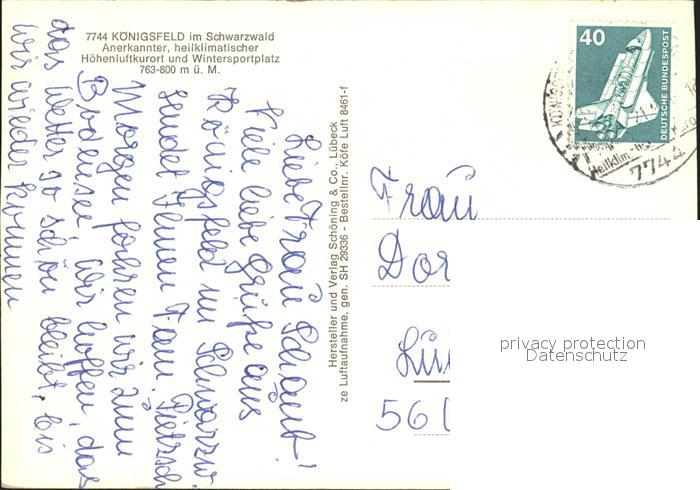 7744 KÖNIGSFELD im Schwarzwald
Anerkannter, heilklimatischer
Höhenluftkurort und Wintersportplatz
763-800 m ü. M.
Liebe Frau Schaubt!
Viele liebe Grüße aus
Königsfeld im Schwarzw.
sendet Ihnen Fam. Pietzsch
Morgen fahren wir zum
Bodensee. Wir hoffen, das
das Wetter so schön bleibt, bis
wir wieder kommen
Hersteller und Verlag Schöning & Co., Lübeck
ze Luftaufnahme, gen. SH 29336 - Bestellnr. Köfe Luft 8461-f
40
DEUTSCHE BUNDESPOST
7744
Frau
Dor
Lün
56
privacy protection
Datenschutz